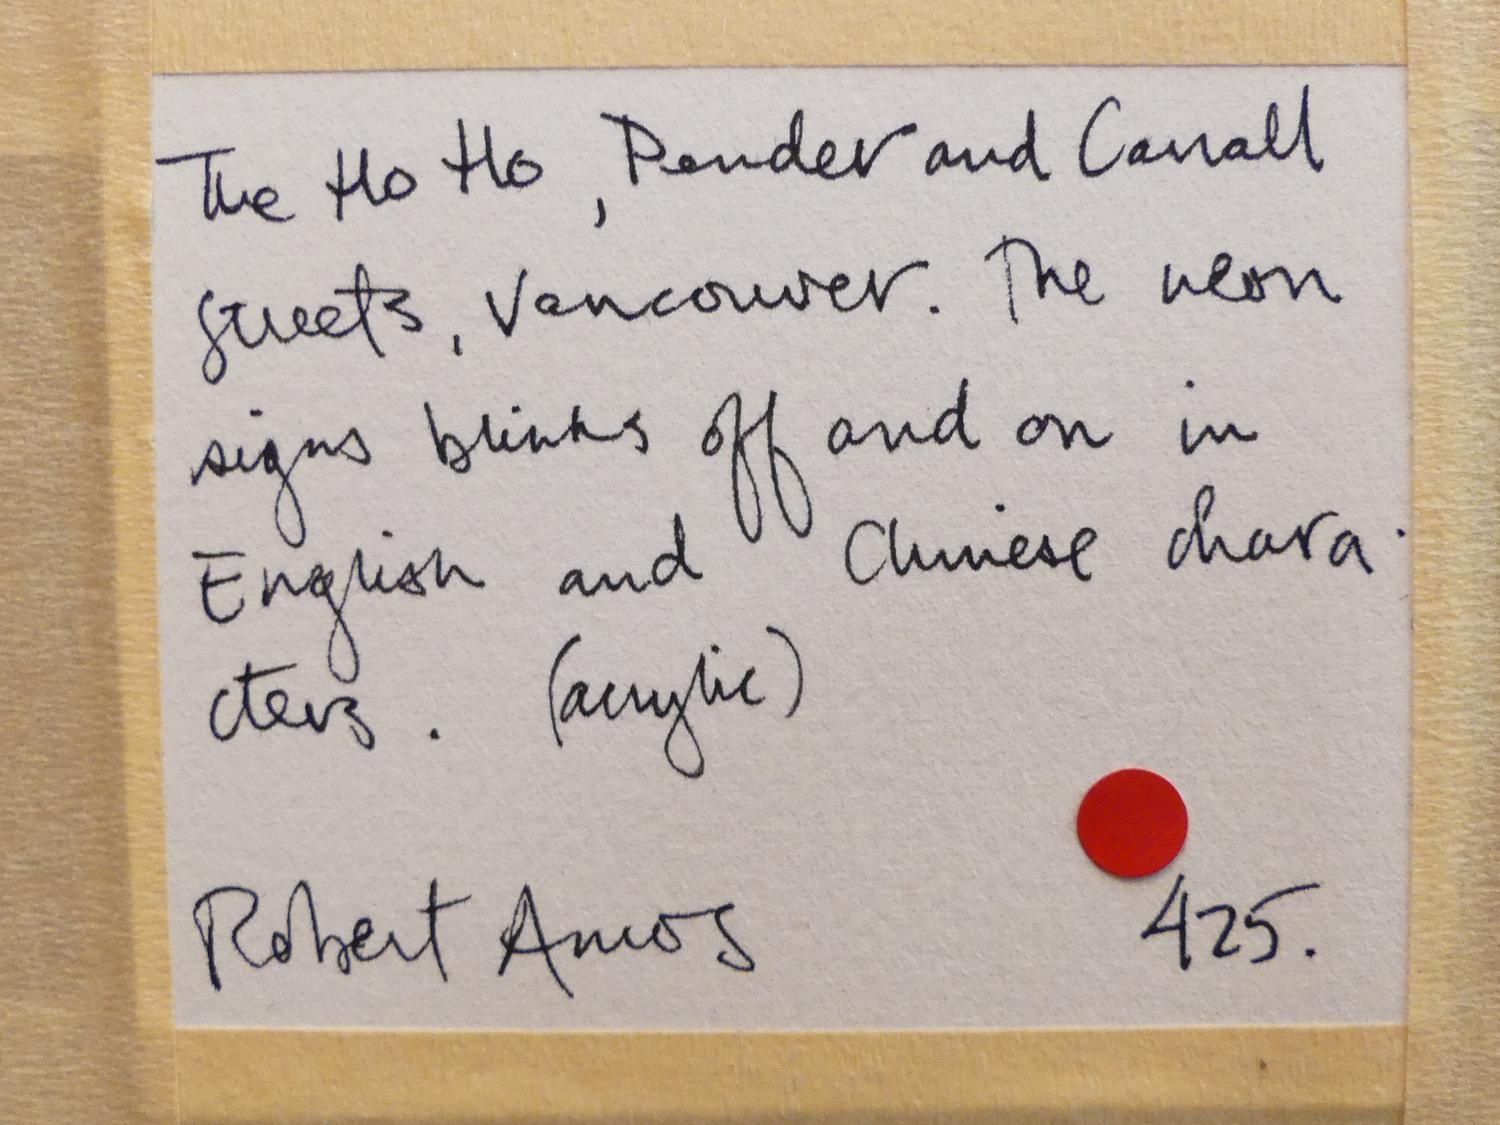 The Ho Ho, Pender and Carrall
streets, Vancouver. The neon
signs blinks off and on in
English and Chinese chara-
cters. (acrylic)
Robert Amos 425.